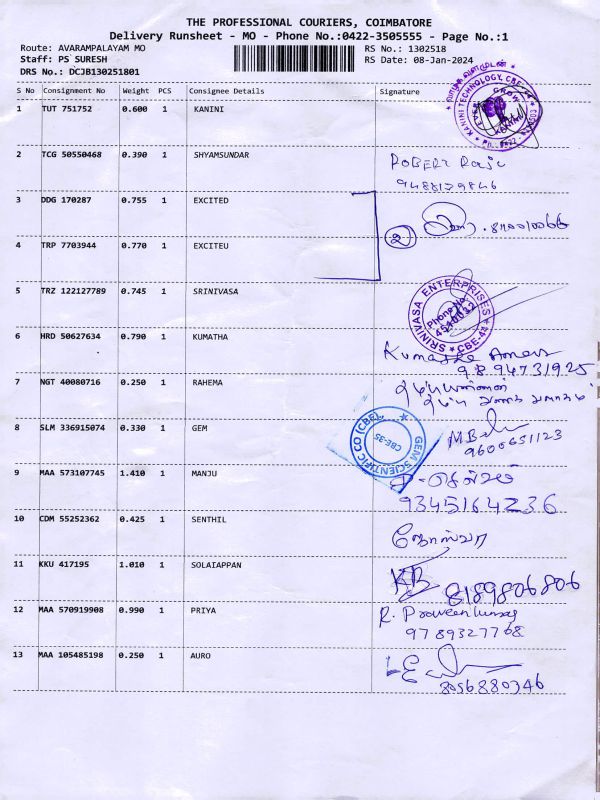 THE PROFESSIONAL COURIERS, COIMBATORE
Delivery Runsheet - MO - Phone No.:0422-3505555 - Page No.:1
Route: AVARAMPALAYAM MO RS No.: 1302518
Staff: PS SURESH RS Date: 08-Jan-2024
DRS No.: DCJB130251801
S No Consignment No Weight PCS Consignee Details Signature
1 TUT 751752 0.600 1 KANINI
வாழ்க வளமுடன்
KANINI TECHNOLOGY, CBE
2 TCG 50550468 0.390 1 SHYAMSUNDAR
ROBERT Raju
3 DDG 170287 0.755 1 EXCITED
2
4 TRP 7703944 0.770 1 EXCITEU
5 TRZ 122127789 0.745 1 SRINIVASA
SRINIVASA ENTERPRISES
Phone No.
CBE-41
6 HRD 50627634 0.790 1 KUMATHA
9894731925
7 NGT 40080716 0.250 1 RAHEMA
8 SLM 336915074 0.330 1 GEM
GEM SCIENTIFIC CO (CBE)
CBE-35
9600651123
9 MAA 573107745 1.410 1 MANJU
9345164236
10 CDM 55252362 0.425 1 SENTHIL
11 KKU 417195 1.010 1 SOLAIAPPAN
KB 8189806806
12 MAA 570919908 0.990 1 PRIYA
R. Praveen Kumar
9789327768
13 MAA 105485198 0.250 1 AURO
8056880346